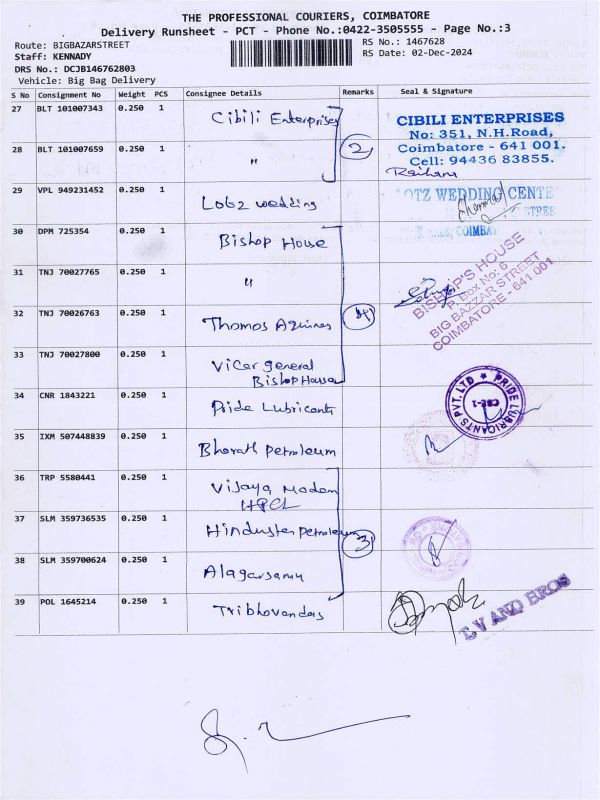 THE PROFESSIONAL COURIERS, COIMBATORE
Delivery Runsheet - PCT - Phone No.:0422-3505555 - Page No.:3
Route: BIGBAZARSTREET
RS No.: 1467628
Staff: KENNADY
RS Date: 02-Dec-2024
DRS No.: DCJB146762803
Vehicle: Big Bag Delivery
S No Consignment No Weight PCS Consignee Details Remarks Seal & Signature
27 BLT 101007343 0.250 1 Cibili Enterprises
CIBILI ENTERPRISES
No: 351, N.H.Road,
Coimbatore - 641 001.
Cell: 94436 83855.
28 BLT 101007659 0.250 1 " 2
29 VPL 949231452 0.250 1 Lotz wedding
LOTZ WEDDING CENTE
STREE
COIMBA
30 DPM 725354 0.250 1 Bishop House
31 TNJ 70027765 0.250 1 "
BISHOP'S HOUSE
P. Box No: 6
BIG BAZZAR STREET
COIMBATORE - 641 001
32 TNJ 70026763 0.250 1 Thomos Aquines 4
33 TNJ 70027800 0.250 1 Vicar general
Bishop House
34 CNR 1843221 0.250 1 Pride Lubricants
PRIDE LUBRICANTS PVT. LTD
CBE-1
35 IXM 507448839 0.250 1 Bharath petroleum
36 TRP 5580441 0.250 1 Vijaya Madam
HPCL
37 SLM 359736535 0.250 1 Hindusten petroleum 3
38 SLM 359700624 0.250 1 Alagarsamy
39 POL 1645214 0.250 1 Tribhovandas
T.V AND BROS